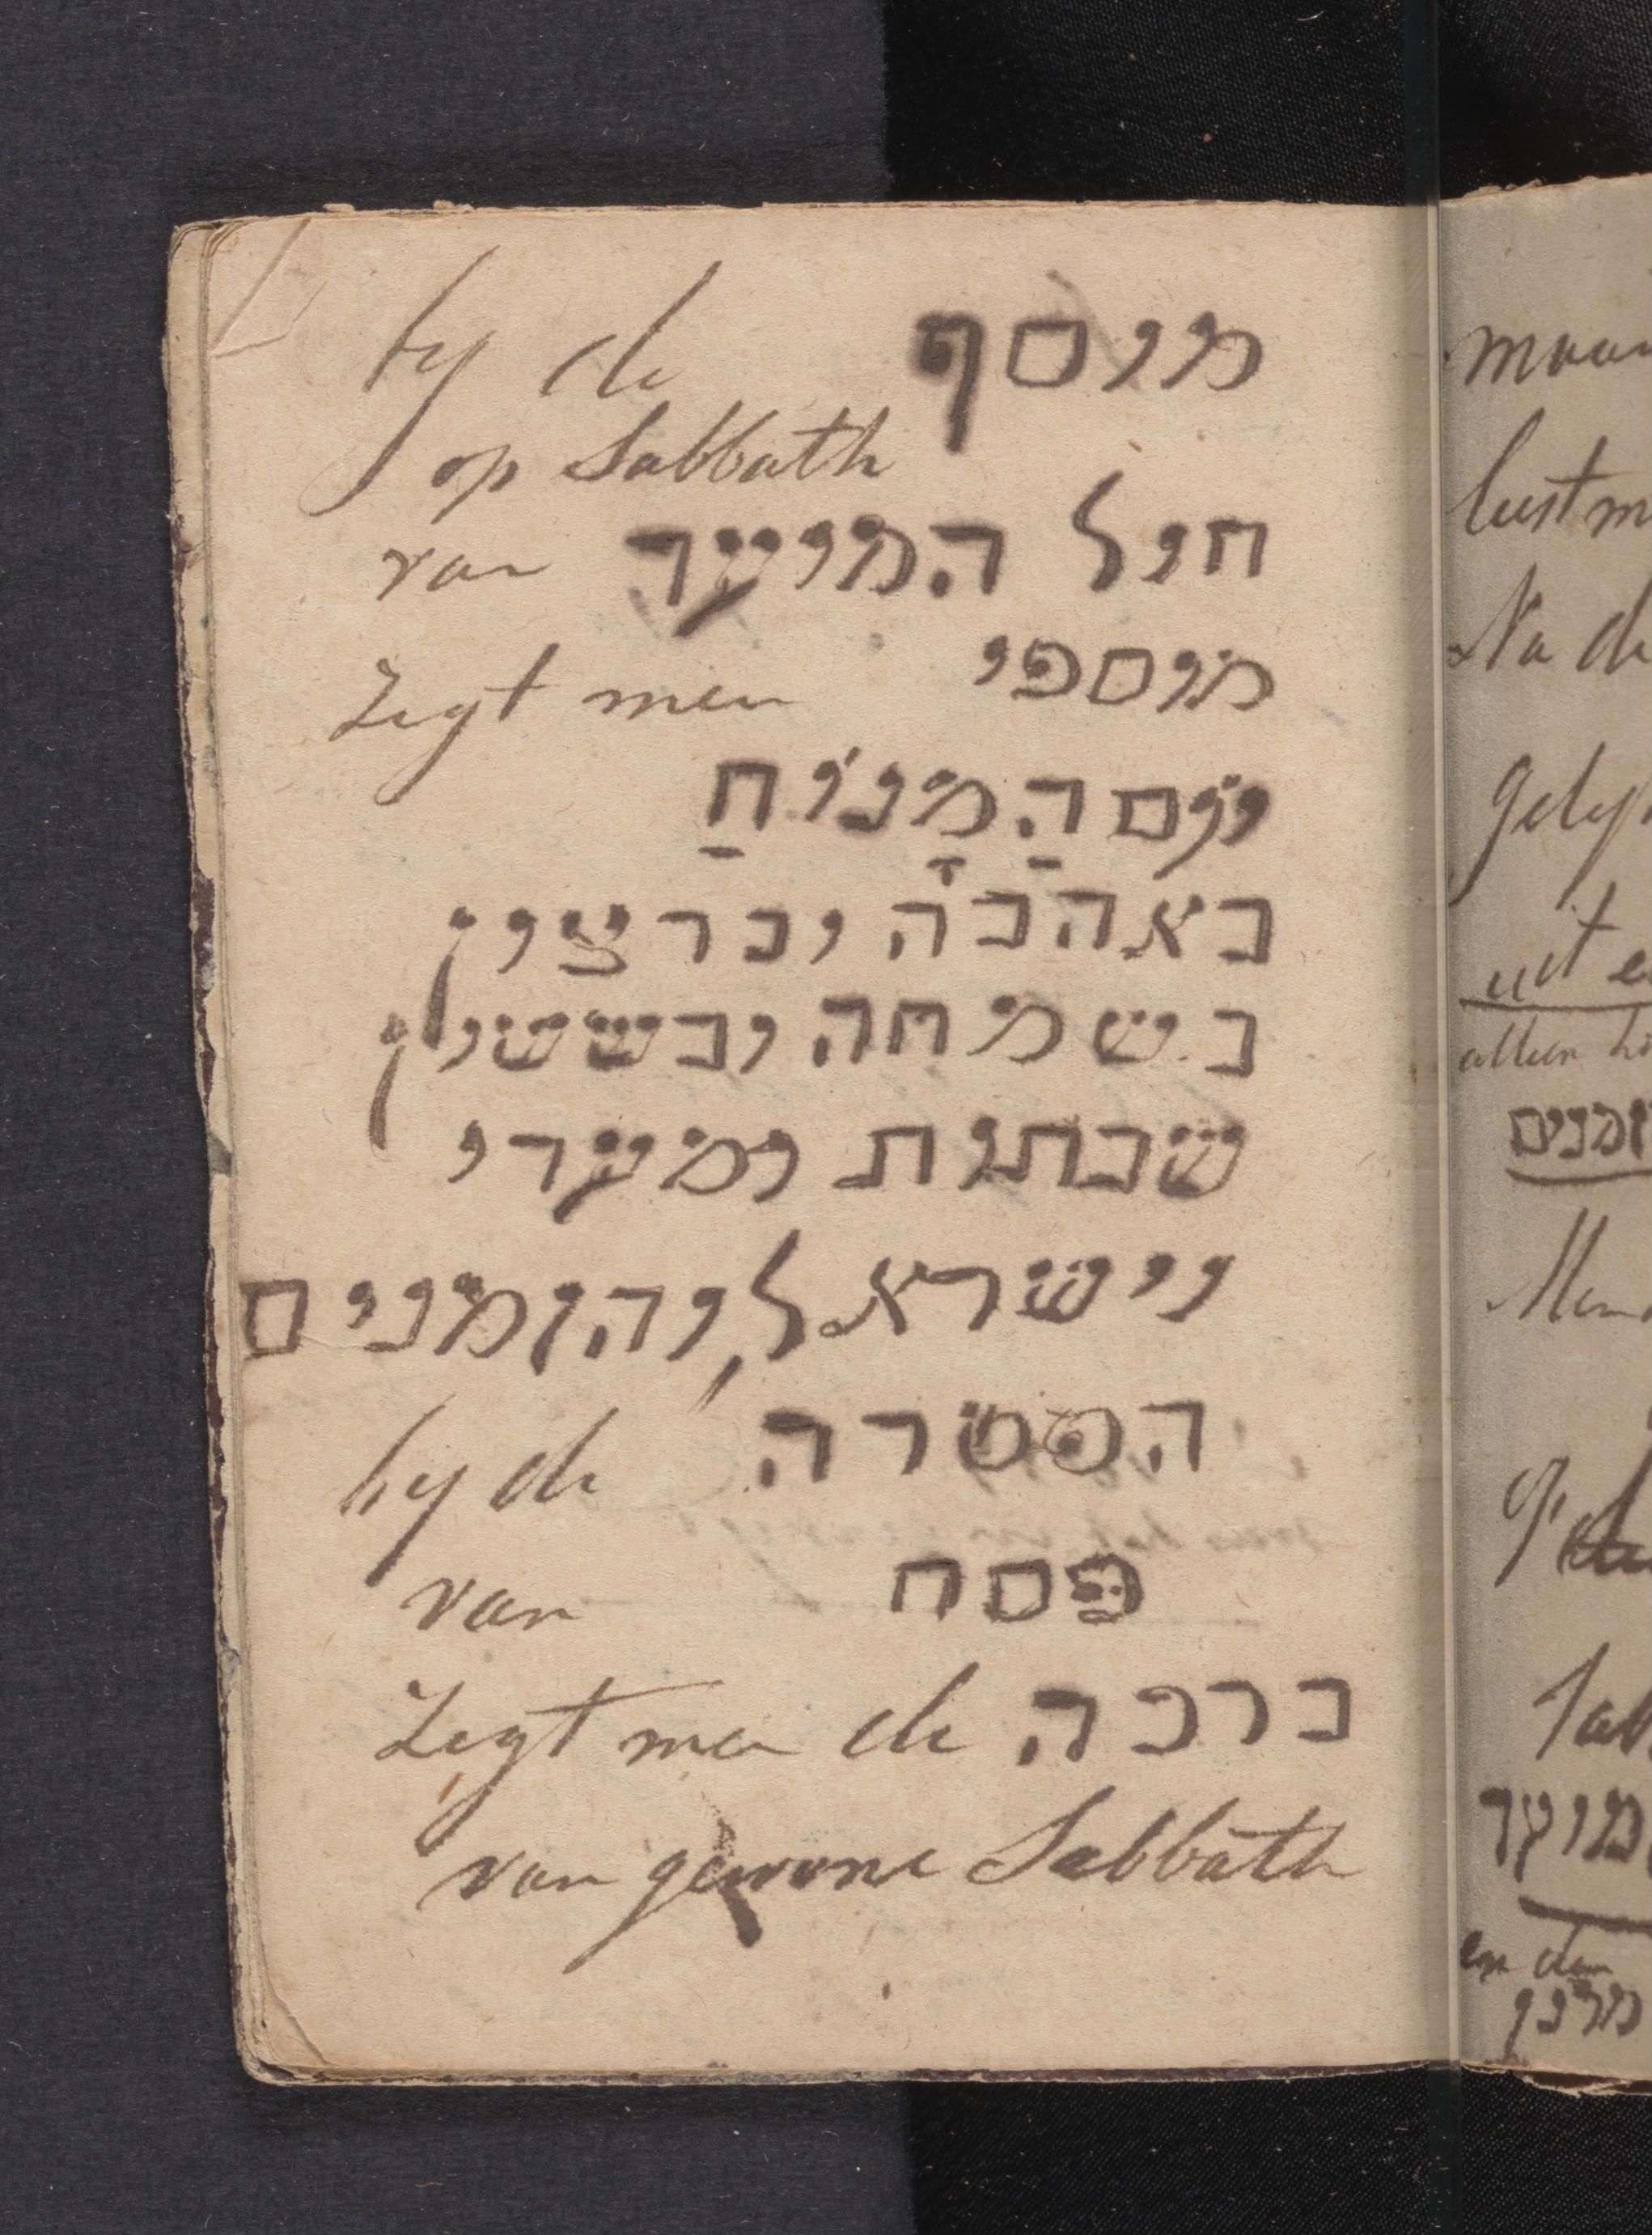 by de מוסף
op Sabbath
van חול המועד
Zegt men מוספי
יוֹם הַמָנוֹחַ
באהבה וברצון
בשמחה ובששון
שבתות ומערי
וישראל והזמנים
by de הפטרה
van פסח
Zegt men de ברכה
van gewone Sabbath
maan
leest m
Na de
gelyk
uit e
זמנים
Men
op
מועד
en den